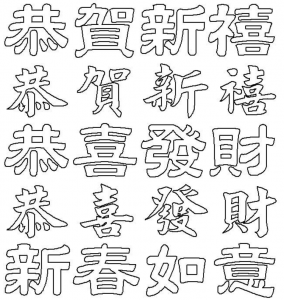 恭賀新禧
恭賀新禧
恭喜發財
恭喜發財
新春如意